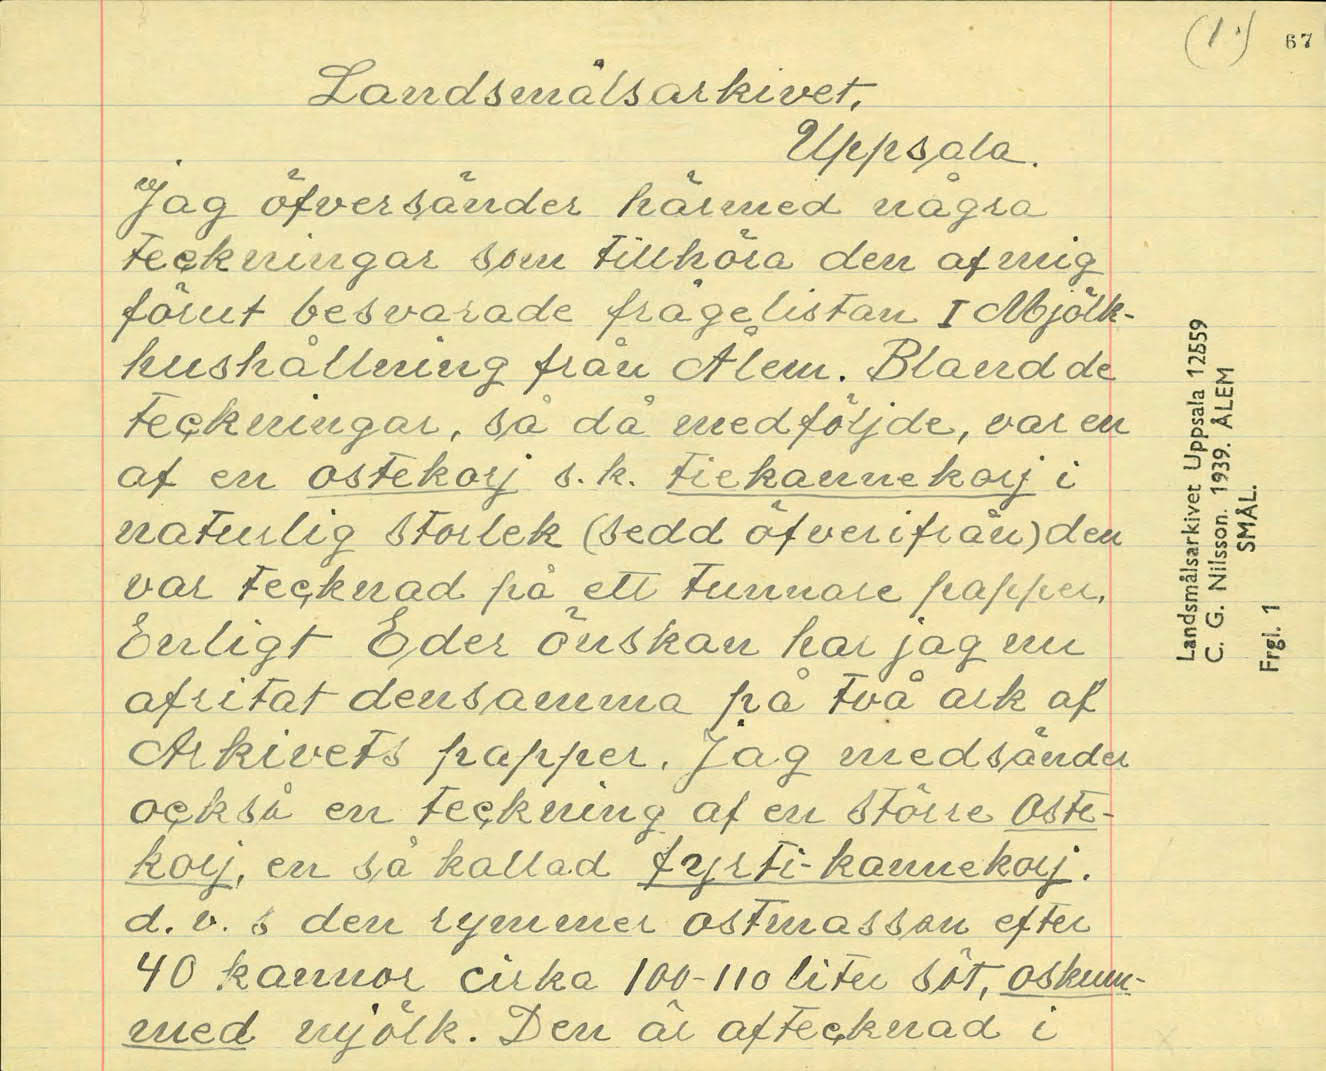 (1.) 67
Landsmålsarkivet,
Uppsala.
Jag öfversänder härmed några
teckningar som tillhöra den af mig
förut besvarade frågelistan I Mjölk-
hushållning från Ålem. Bland de
teckningar, så då medföljde, var en
af en ostekorj s.k. tiekannekorj i
naturlig storlek (sedd öfverifrån) den
var tecknad på ett tunnare papper.
Enligt Eder önskan har jag nu
afritat densamma på två ark af
Arkivets papper. Jag medsänder
också en teckning af en större oste-
korj, en så kallad fyrti-kannekorj.
d. v. s den rymmer ostmassan efter
40 kannor cirka 100-110 liter söt, oskum-
med mjölk. Den är aftecknad i
Landsmålsarkivet Uppsala 12559
C. G. Nilsson. 1939. ÅLEM
SMÅL.
Frgl. 1